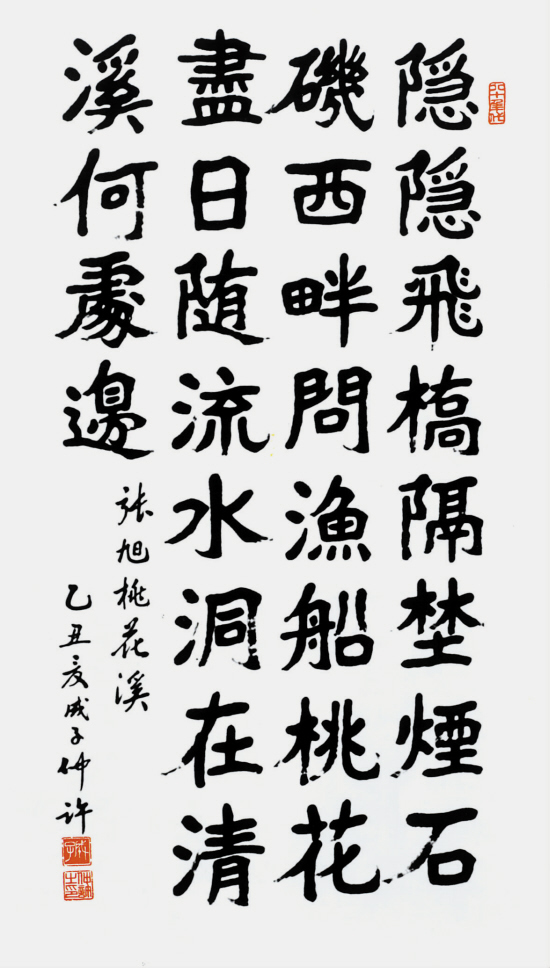 隐隐飛橋隔埜煙石
磯西畔問漁船桃花
盡日随流水洞在清
溪何處邊
张旭桃花溪
乙丑夏成子仲许